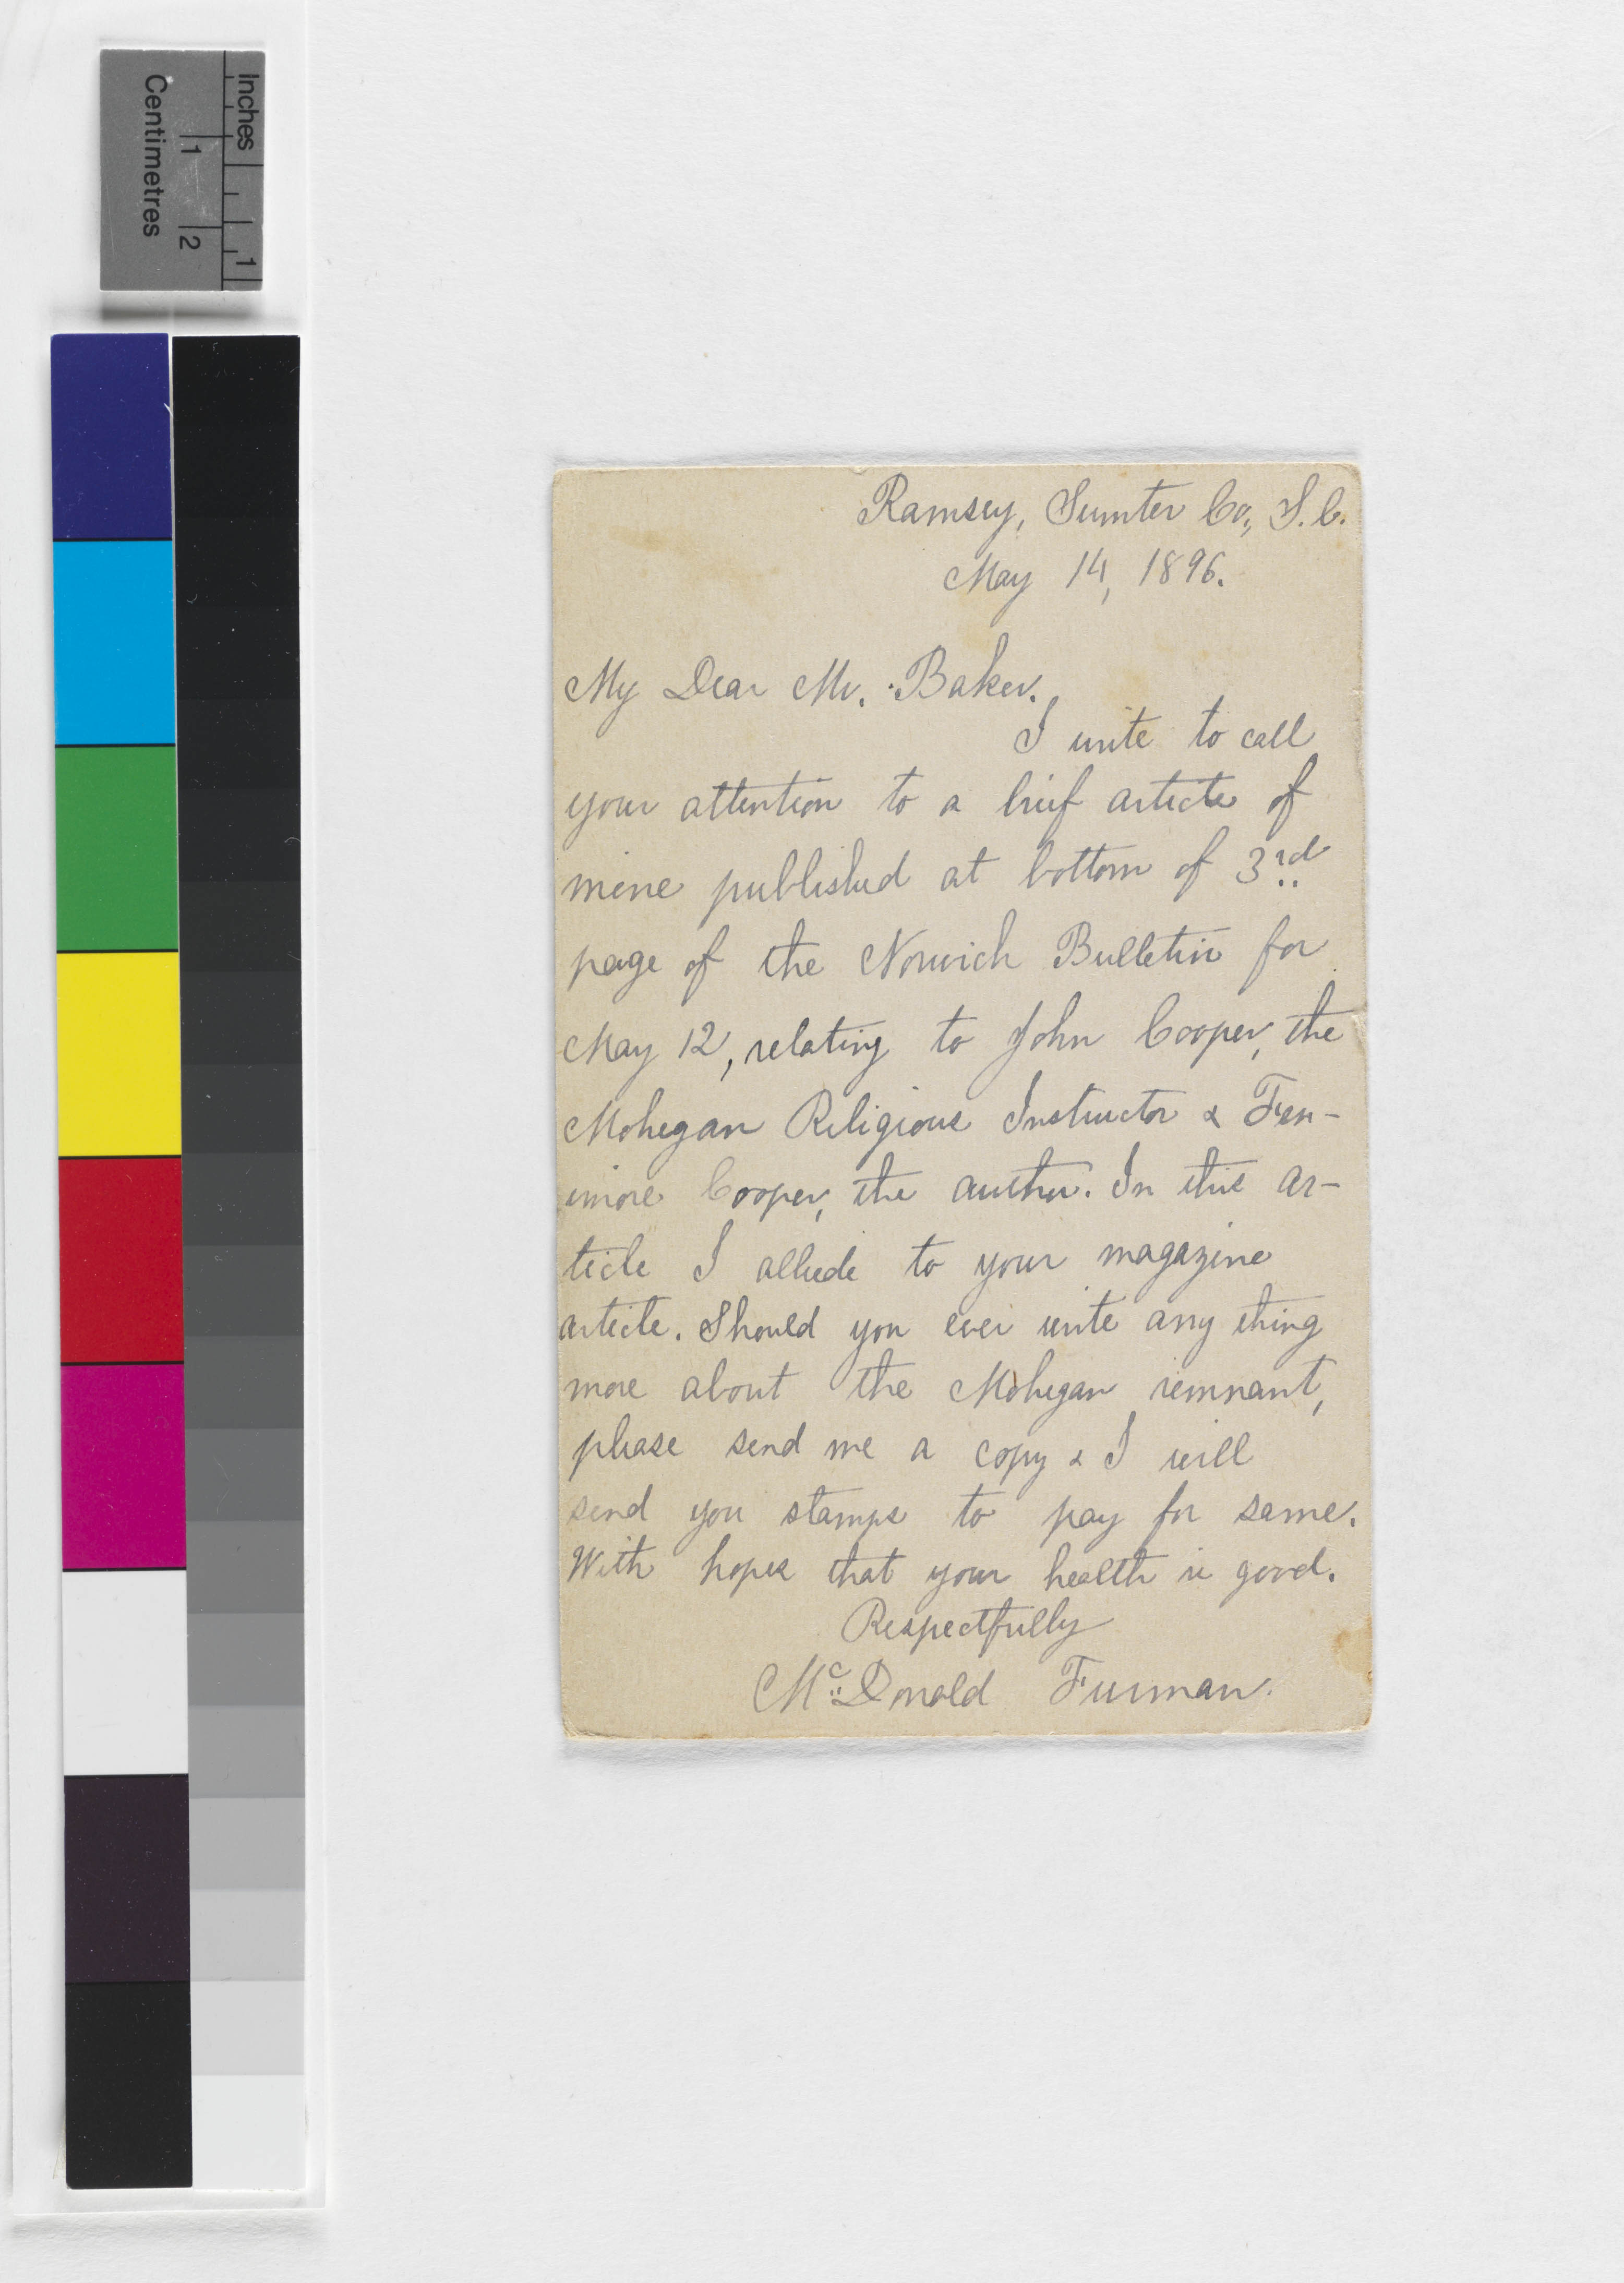 Inches
1
Centimetres
1
2
Ramsey, Sumter Co., S.C.
May 14, 1896.
My Dear Mr. Baker.
I write to call
your attention to a brief article of
mine published at bottom of 3rd
page of the Norwich Bulletin for
May 12, relating to John Cooper, the
Mohegan Religious Instructor & Fen-
imore Cooper, the author. In this ar-
ticle I allude to your magazine
article. Should you ever write any thing
more about the Mohegan remnant,
please send me a copy & I will
send you stamps to pay for same.
With hopes that your health is good.
Respectfully
McDonald Furman.